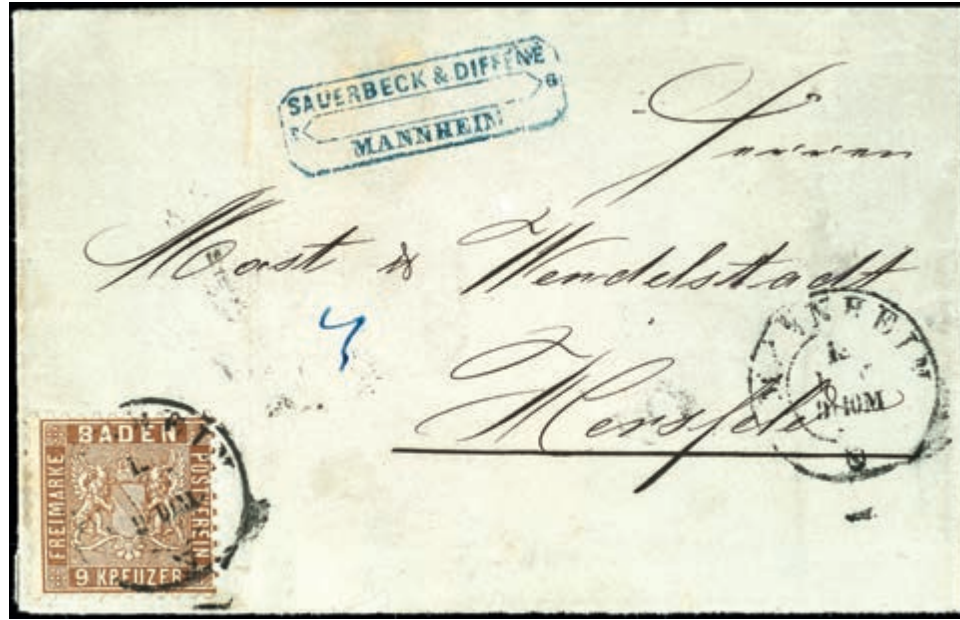 SAUERBECK & DIFFENÉ
MANNHEIM
Herren
& Wendelstadt
Hersfeld
MANNHEIM
BADEN
FREIMARKE
POSTVEREIN
9 KREUZER